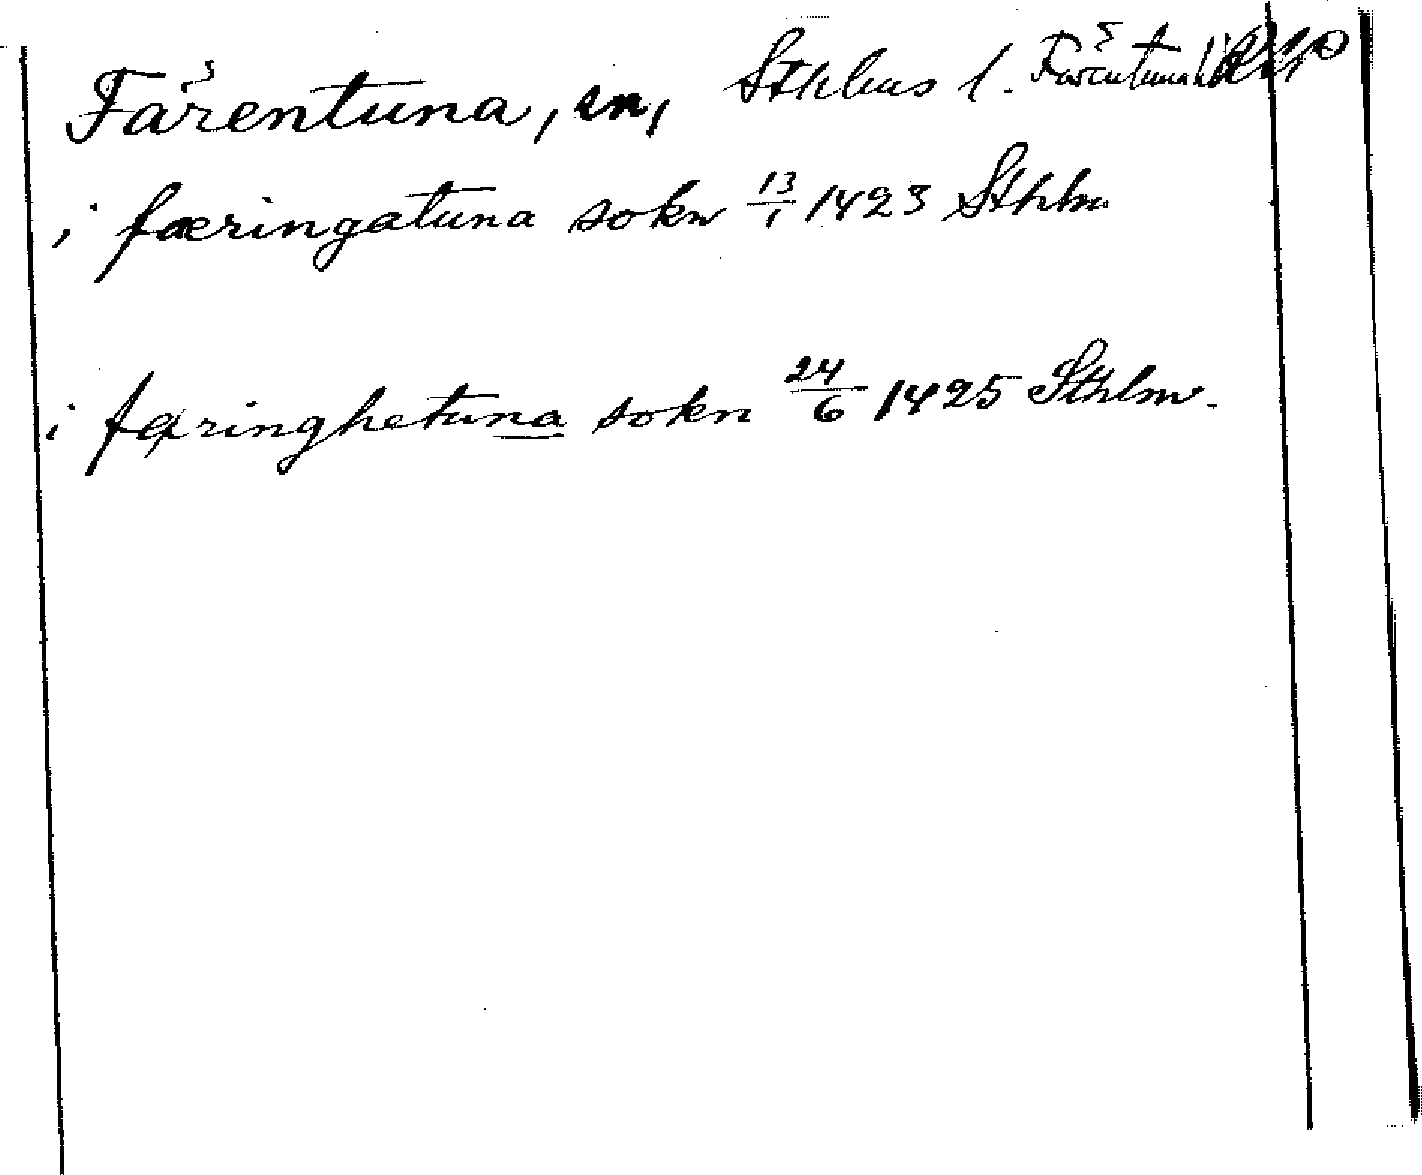 Färentuna, sn, Sthlms l. Färentuna
i færingatuna sokn 13/1 1423 Sthlm
i færinghetuna sokn 24/6 1425 Sthlm.